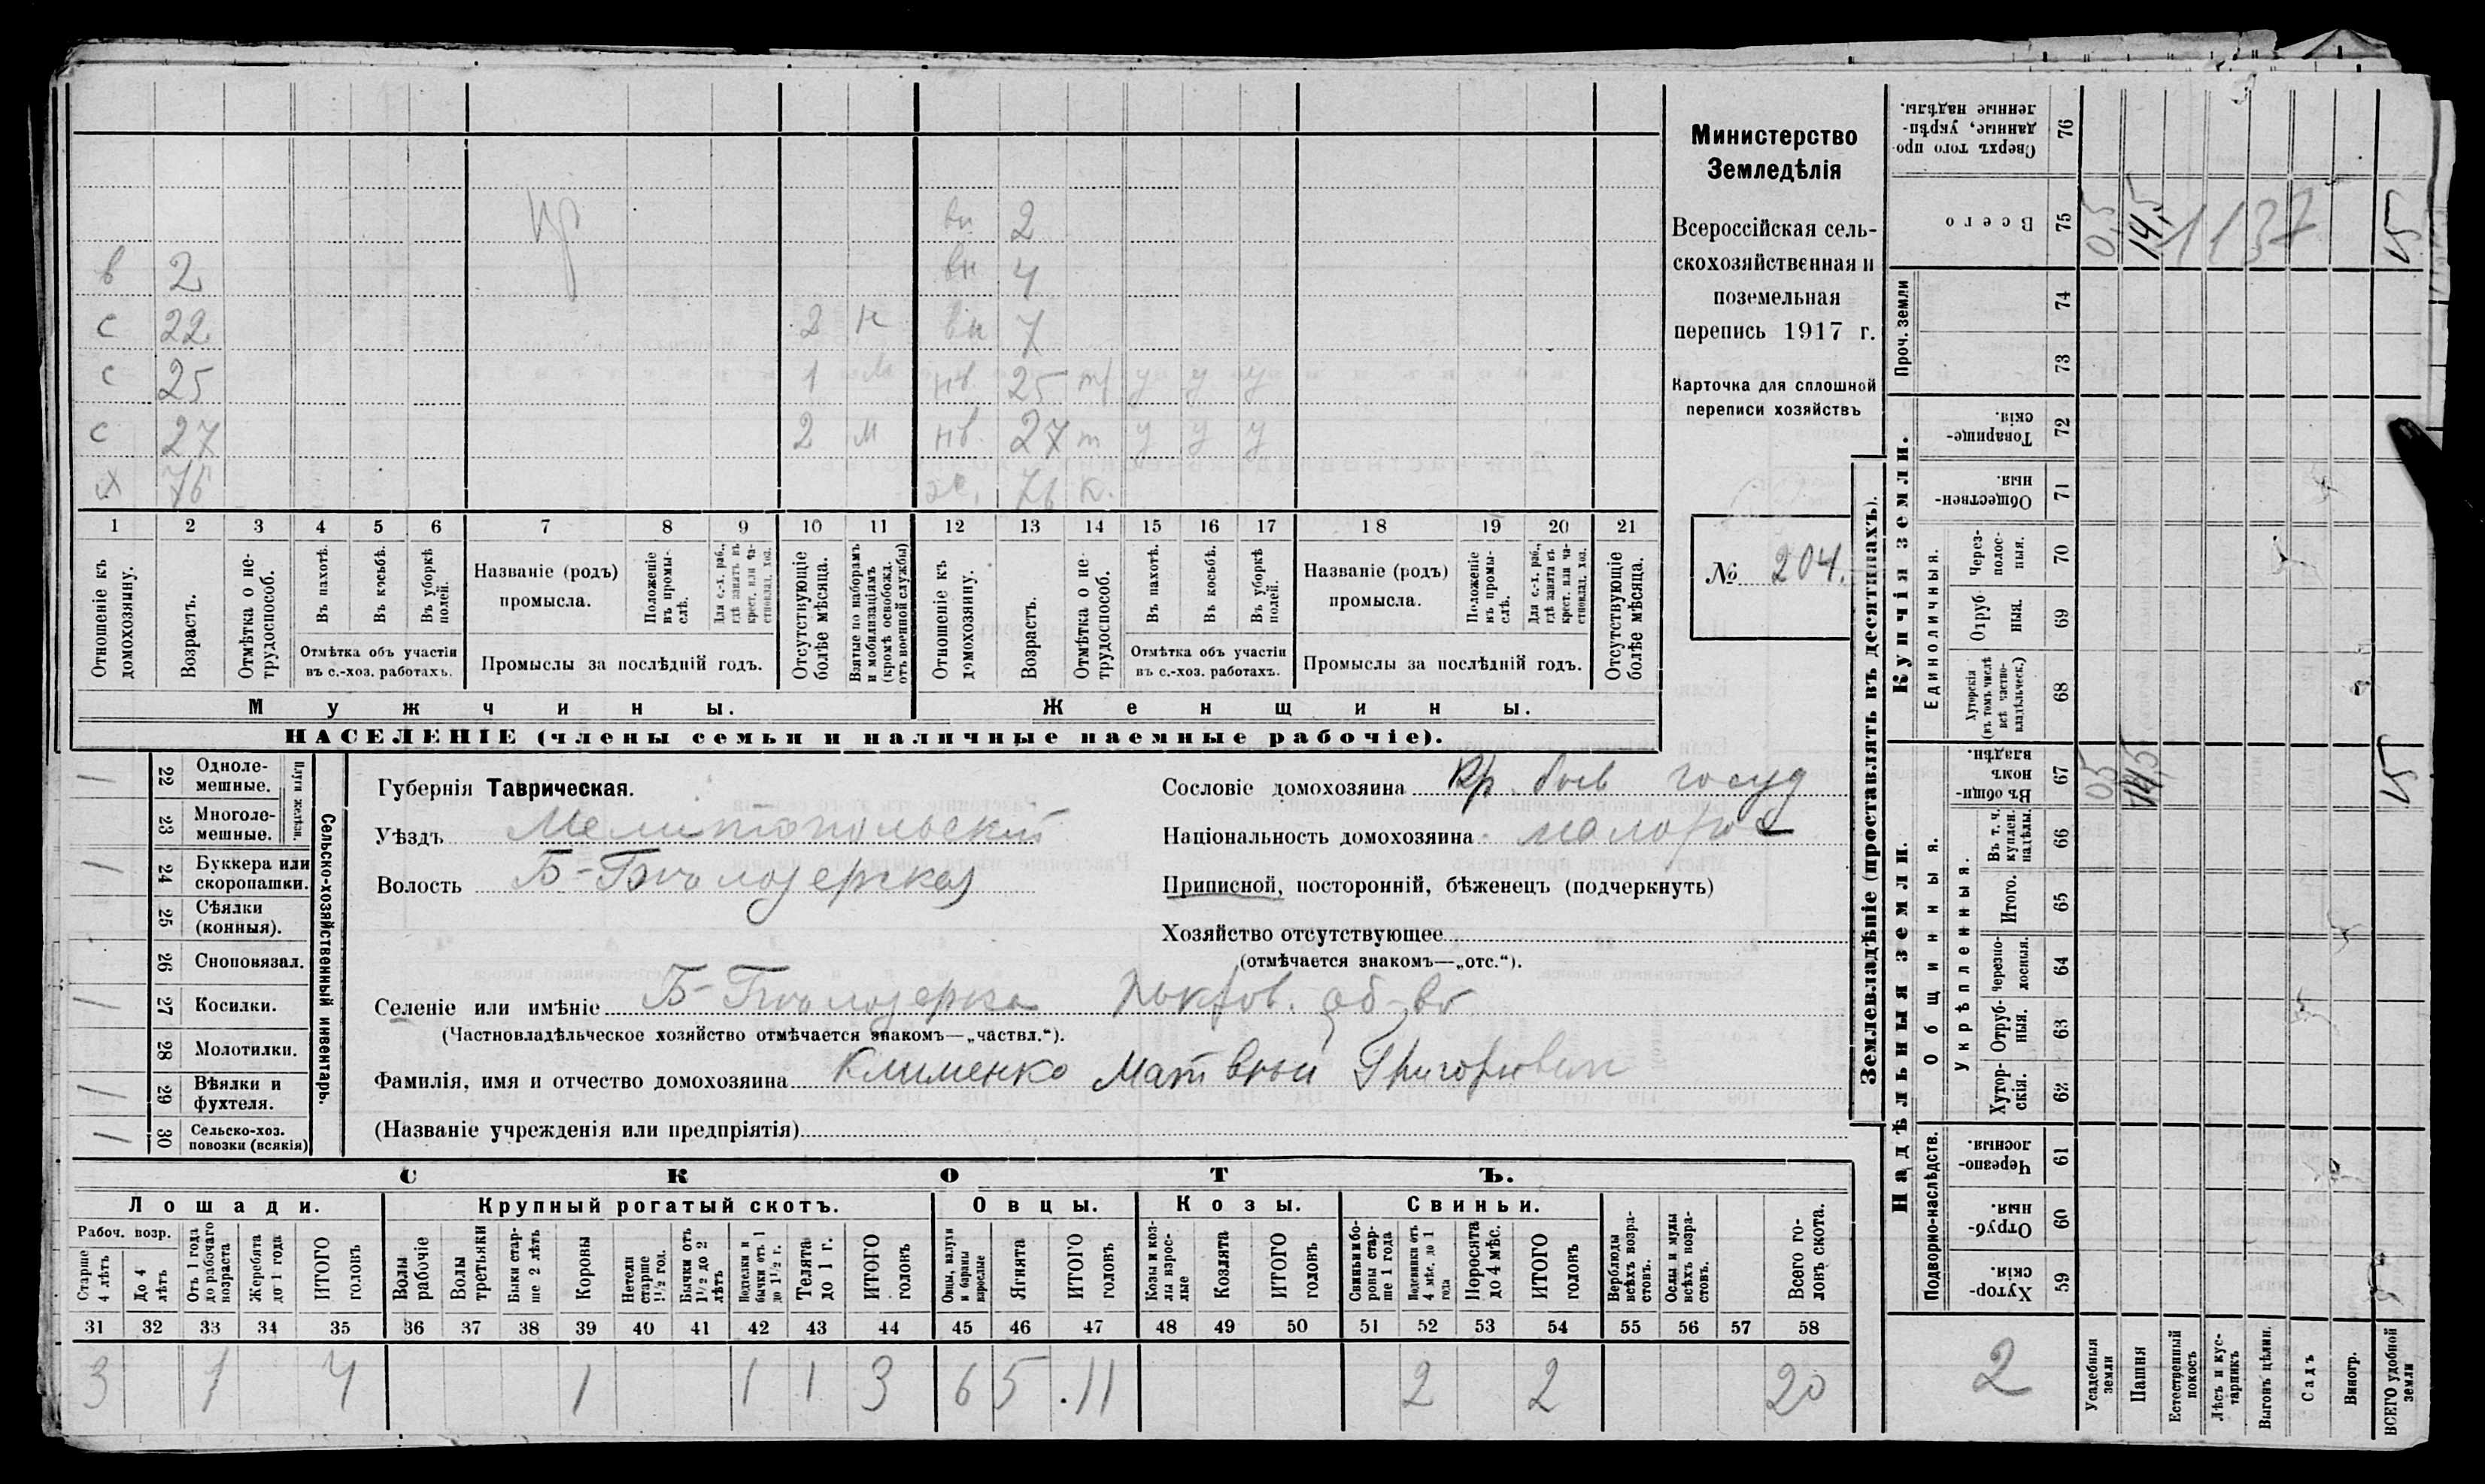 Министерство
Земледѣлія
Всероссійская сель-
скохозяйственная и
поземельная
перепись 1917 г.
Карточка для сплошной
переписи хозяйствъ
№ 204.
вн 2
в 2 вн 4
с 22 2 н вн 7
с 25 1 м нв. 25 т у у у
с 27 2 м нв. 27 т у у у
х 76 ж. 76 к.
1 2 3 4 5 6 7 8 9 10 11 12 13 14 15 16 17 18 19 20 21
Отношеніе къ домохозяину.
Возрастъ.
Отмѣтка о не-трудоспособ.
Въ пахотѣ.
Въ косьбѣ.
Въ уборкѣ полей.
Отмѣтка объ участіи
въ с.-хоз. работахъ.
Названіе (родъ)
промысла.
Положеніе въ промы-слѣ.
Для с.-х. раб., гдѣ занятъ въ крест. или ча-стновлад. хоз.
Промыслы за послѣдній годъ.
Отсутствующіе болѣе мѣсяца.
Взятые по наборамъ и мобилизаціямъ (кромѣ освобожд. отъ военной службы)
Отношеніе къ домохозяину.
Возрастъ.
Отмѣтка о не-трудоспособ.
Въ пахотѣ.
Въ косьбѣ.
Въ уборкѣ полей.
Отмѣтка объ участіи
въ с.-хоз. работахъ.
Названіе (родъ)
промысла.
Положеніе въ промы-слѣ.
Для с.-х. раб., гдѣ занята въ крест. или ча-стновлад. хоз.
Промыслы за послѣдній годъ.
Отсутствующіе болѣе мѣсяца.
Мужчины. Женщины.
НАСЕЛЕНІЕ (члены семьи и наличные наемные рабочіе).
Сельско-хозяйственный инвентарь.
Плуги желѣзн.
22 Одноле-мешные. /
23 Многоле-мешные.
24 Буккера или скоропашки. /
25 Сѣялки (конныя).
26 Сноповязал.
27 Косилки. /
28 Молотилки.
29 Вѣялки и фухтеля. /
30 Сельско-хоз. повозки (всякія) /
Губернія Таврическая.
Уѣздъ Мелитопольскій
Волость Б-Бѣлозерская
Сословіе домохозяина Кр. быв госуд
Національность домохозяина малорос
Приписной, посторонній, бѣженецъ (подчеркнуть)
Хозяйство отсутствующее
(отмѣчается знакомъ—„отс.“).
Селеніе или имѣніе Б-Бѣлозерка Покров. об-во
(Частновладѣльческое хозяйство отмѣчается знакомъ—„частвл.“).
Фамилія, имя и отчество домохозяина Клименко Матвѣй Григорьевич
(Названіе учрежденія или предпріятія)
СКОТЪ.
Лошади. Крупный рогатый скотъ. Овцы. Козы. Свиньи.
Рабоч. возр.
Старше 4 лѣтъ
До 4 лѣтъ
Отъ 1 года до рабочаго возраста
Жеребята до 1 года
ИТОГО головъ
Волы рабочіе
Волы третьяки
Быки стар-ше 2 лѣтъ
Коровы
Нетели старше 1½ год.
Бычки отъ 1½ до 2 лѣтъ
Подтелки и бычки отъ 1 до 1½ г.
Телята до 1 г.
ИТОГО головъ
Овцы, валухи и бараны взрослые
Ягнята
ИТОГО головъ
Козы и коз-лы взрос-лые
Козлята
ИТОГО головъ
Свиньи и бо-ровы стар-ше 1 года
Подсвинки отъ 4 мѣс. до 1 года
Поросята до 4 мѣс.
ИТОГО головъ
Верблюды всѣхъ возра-стовъ.
Ослы и мулы всѣхъ возра-стовъ.
Всего го-ловъ скота.
31 32 33 34 35 36 37 38 39 40 41 42 43 44 45 46 47 48 49 50 51 52 53 54 55 56 57 58
3 1 4 1 1 1 3 6 5 11 2 2 20
Землевладѣніе (проставлять въ десятинахъ).
Купчія земли.
Надѣльныя земли.
Проч. земли
Единоличныя.
Общинныя.
Укрѣпленныя.
Подворно-наслѣдств.
Сверхъ того про-данные, укрѣп-ленные надѣлы. 76
Всего 75 0,5 14,5 15
74
73
Товарище-скія. 72
Обществен-ныя. 71
Через-полос-ныя. 70
Отруб-ныя. 69
Хуторскія (въ томъ числѣ всѣ частно-владѣльческ.) 68
Въ общин-номъ владѣн. 67 0,5 14,5 15
Въ т. ч. куплен. надѣлы. 66
Итого. 65
Черезпо-лосныя. 64
Отруб-ныя. 63
Хутор-скія. 62
Черезпо-лосныя. 61
Отруб-ныя. 60
Хутор-скія. 59
2
Усадебныя земли
Пашня
Естественный покосъ
Лѣсъ и кус-тарникъ
Выгонъ цѣлин.
Садъ
Виногр.
ВСЕГО удобной земли